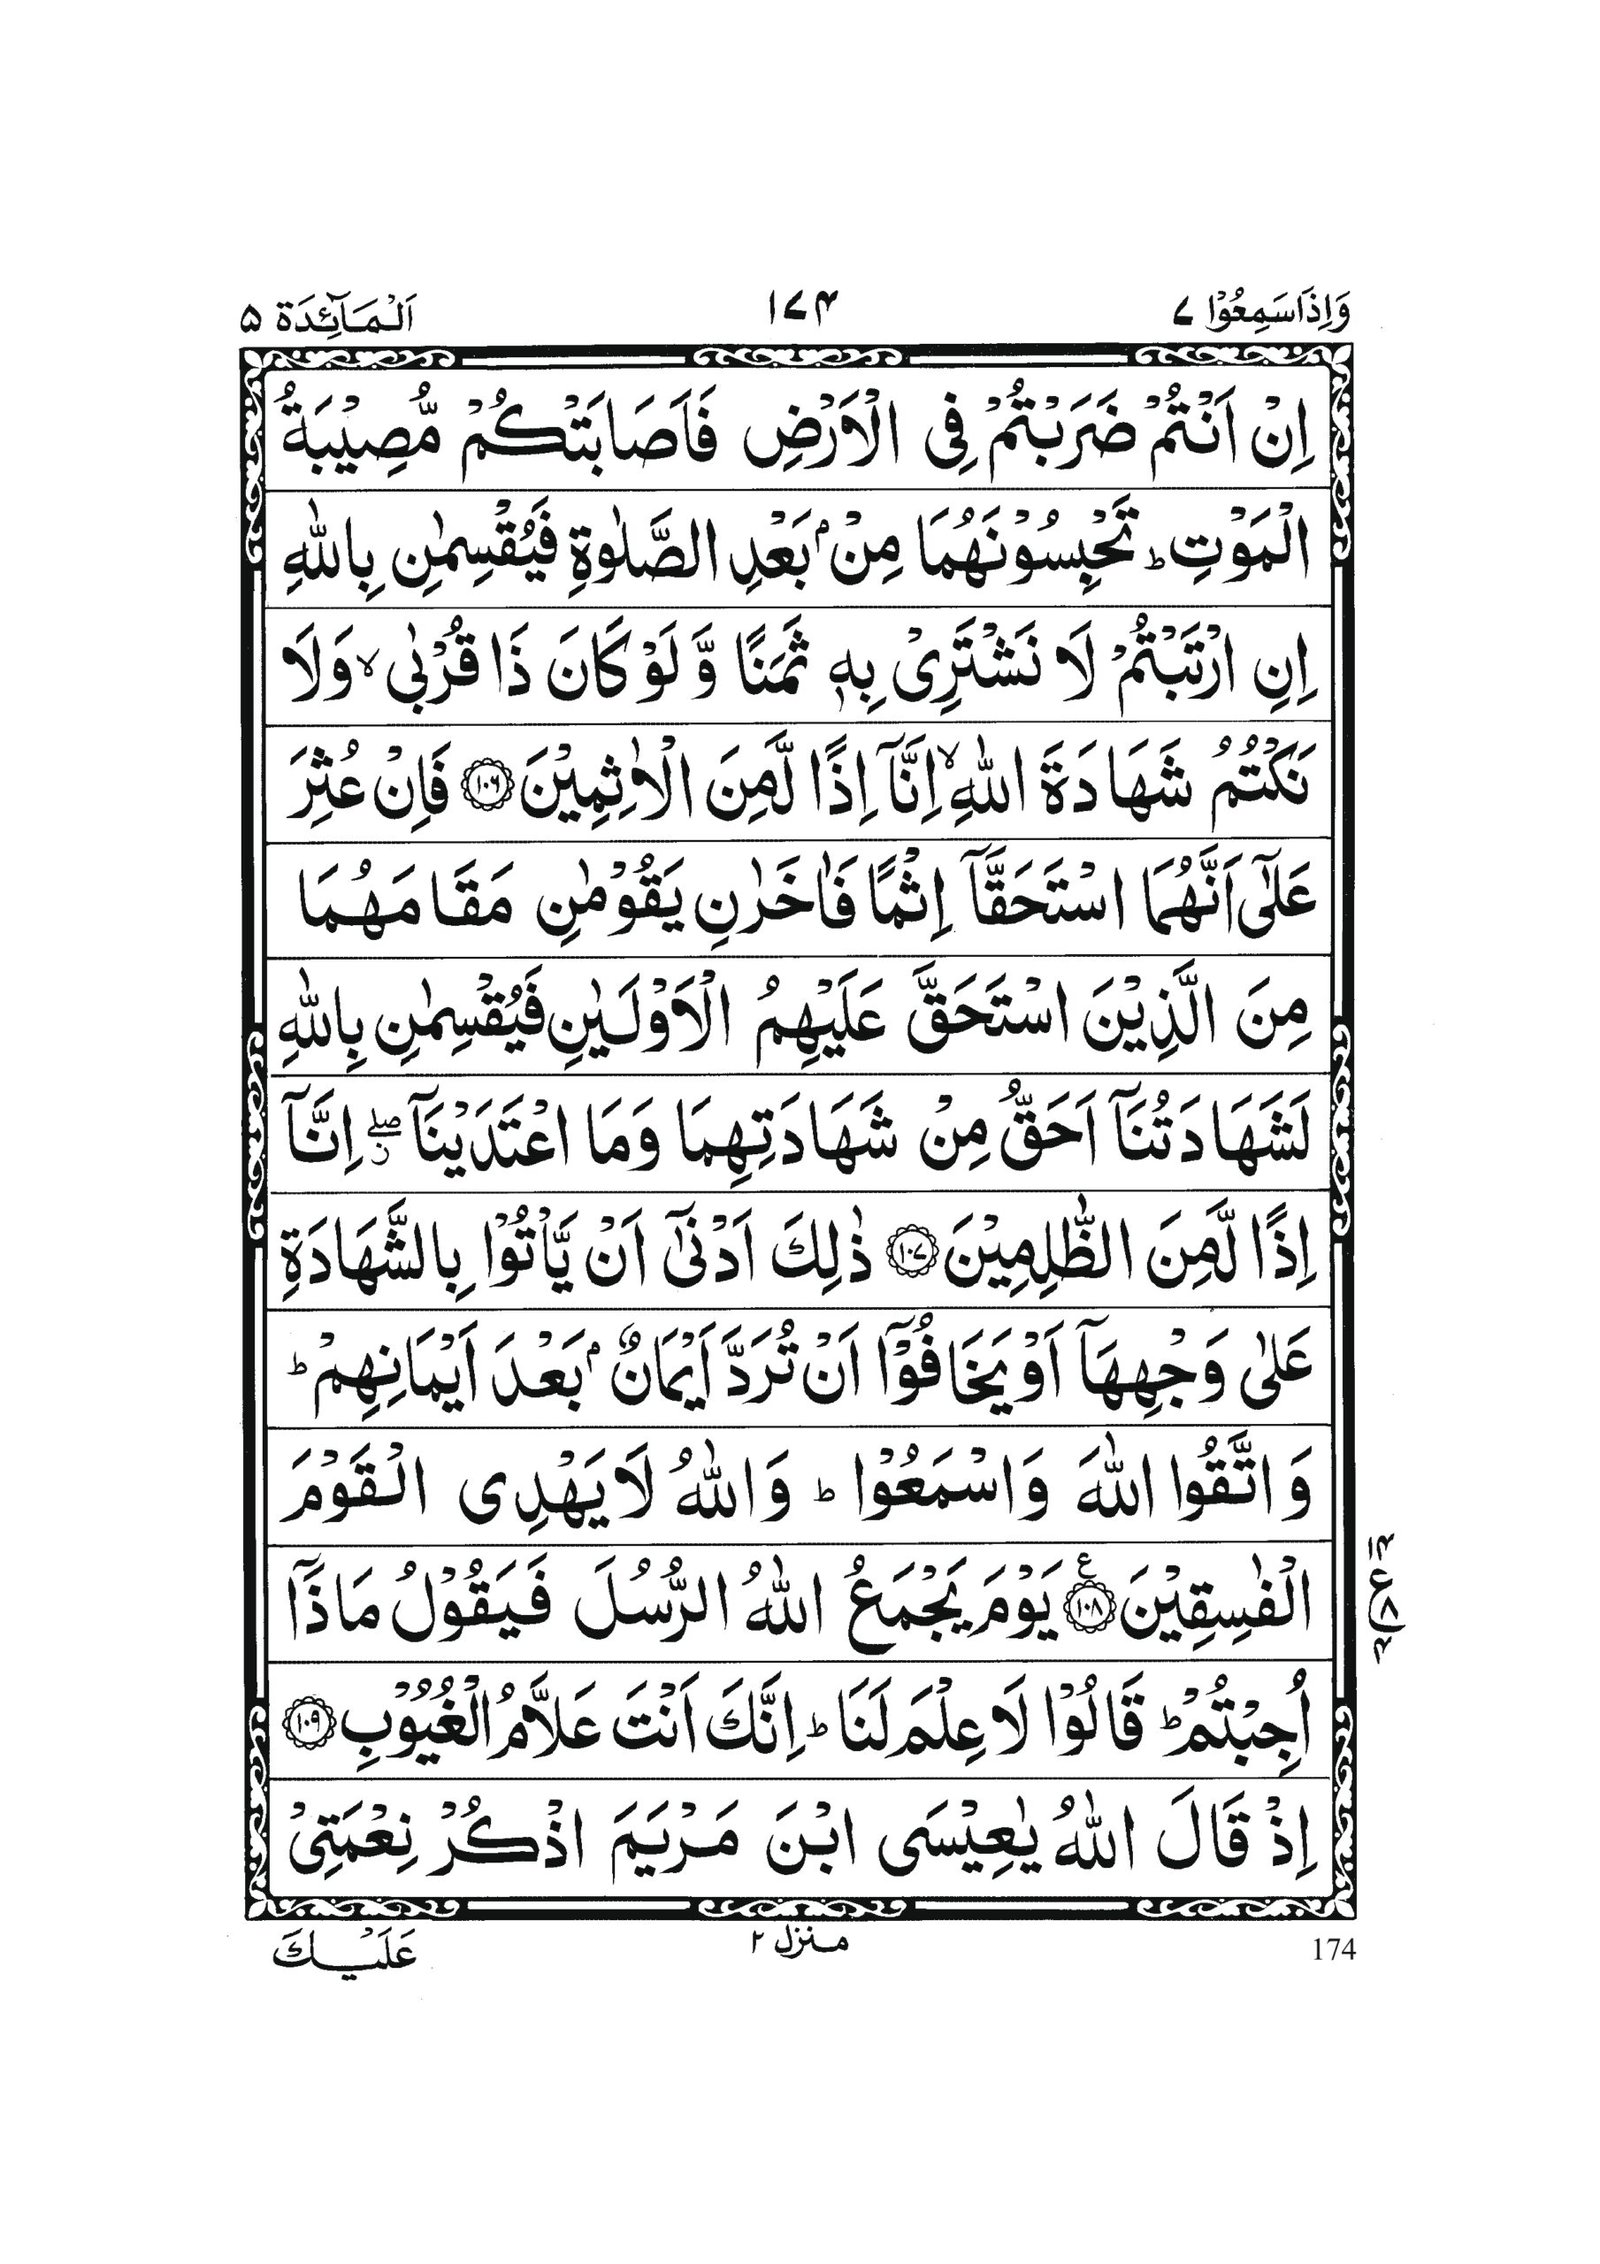 وَاِذَا سَمِعُوْا ۷ ۱۷۴ اَلْمَآئِدَة ۵
اِنْ اَنْتُمْ ضَرَبْتُمْ فِی الْاَرْضِ فَاَصَابَتْكُمْ مُّصِیْبَةُ
الْمَوْتِ ؕ تَحْبِسُوْنَهُمَا مِنْۢ بَعْدِ الصَّلٰوةِ فَیُقْسِمٰنِ بِاللّٰهِ
اِنِ ارْتَبْتُمْ لَا نَشْتَرِیْ بِهٖ ثَمَنًا وَّ لَوْ كَانَ ذَا قُرْبٰی ۙ وَلَا
نَكْتُمُ شَهَادَةَ اللّٰهِ ۙ اِنَّاۤ اِذًا لَّمِنَ الْاٰثِمِیْنَ ۝۱۰۶ فَاِنْ عُثِرَ
عَلٰۤی اَنَّهُمَا اسْتَحَقَّاۤ اِثْمًا فَاٰخَرٰنِ یَقُوْمٰنِ مَقَامَهُمَا
مِنَ الَّذِیْنَ اسْتَحَقَّ عَلَیْهِمُ الْاَوْلَیٰنِ فَیُقْسِمٰنِ بِاللّٰهِ
لَشَهَادَتُنَاۤ اَحَقُّ مِنْ شَهَادَتِهِمَا وَمَا اعْتَدَیْنَاۤ ۖ ن اِنَّاۤ
اِذًا لَّمِنَ الظّٰلِمِیْنَ ۝۱۰۷ ذٰلِكَ اَدْنٰۤی اَنْ یَّاْتُوْا بِالشَّهَادَةِ
عَلٰی وَجْهِهَاۤ اَوْ یَخَافُوْۤا اَنْ تُرَدَّ اَیْمَانٌۢ بَعْدَ اَیْمَانِهِمْ ؕ
وَاتَّقُوا اللّٰهَ وَاسْمَعُوْا ؕ وَاللّٰهُ لَا یَهْدِی الْقَوْمَ
الْفٰسِقِیْنَ ۝۱۰۸ ع یَوْمَ یَجْمَعُ اللّٰهُ الرُّسُلَ فَیَقُوْلُ مَاذَاۤ
اُجِبْتُمْ ؕ قَالُوْا لَا عِلْمَ لَنَا ؕ اِنَّكَ اَنْتَ عَلَّامُ الْغُیُوْبِ ۝۱۰۹
اِذْ قَالَ اللّٰهُ یٰعِیْسَی ابْنَ مَرْیَمَ اذْكُرْ نِعْمَتِیْ
174 منزل ۲ عَلَیْكَ